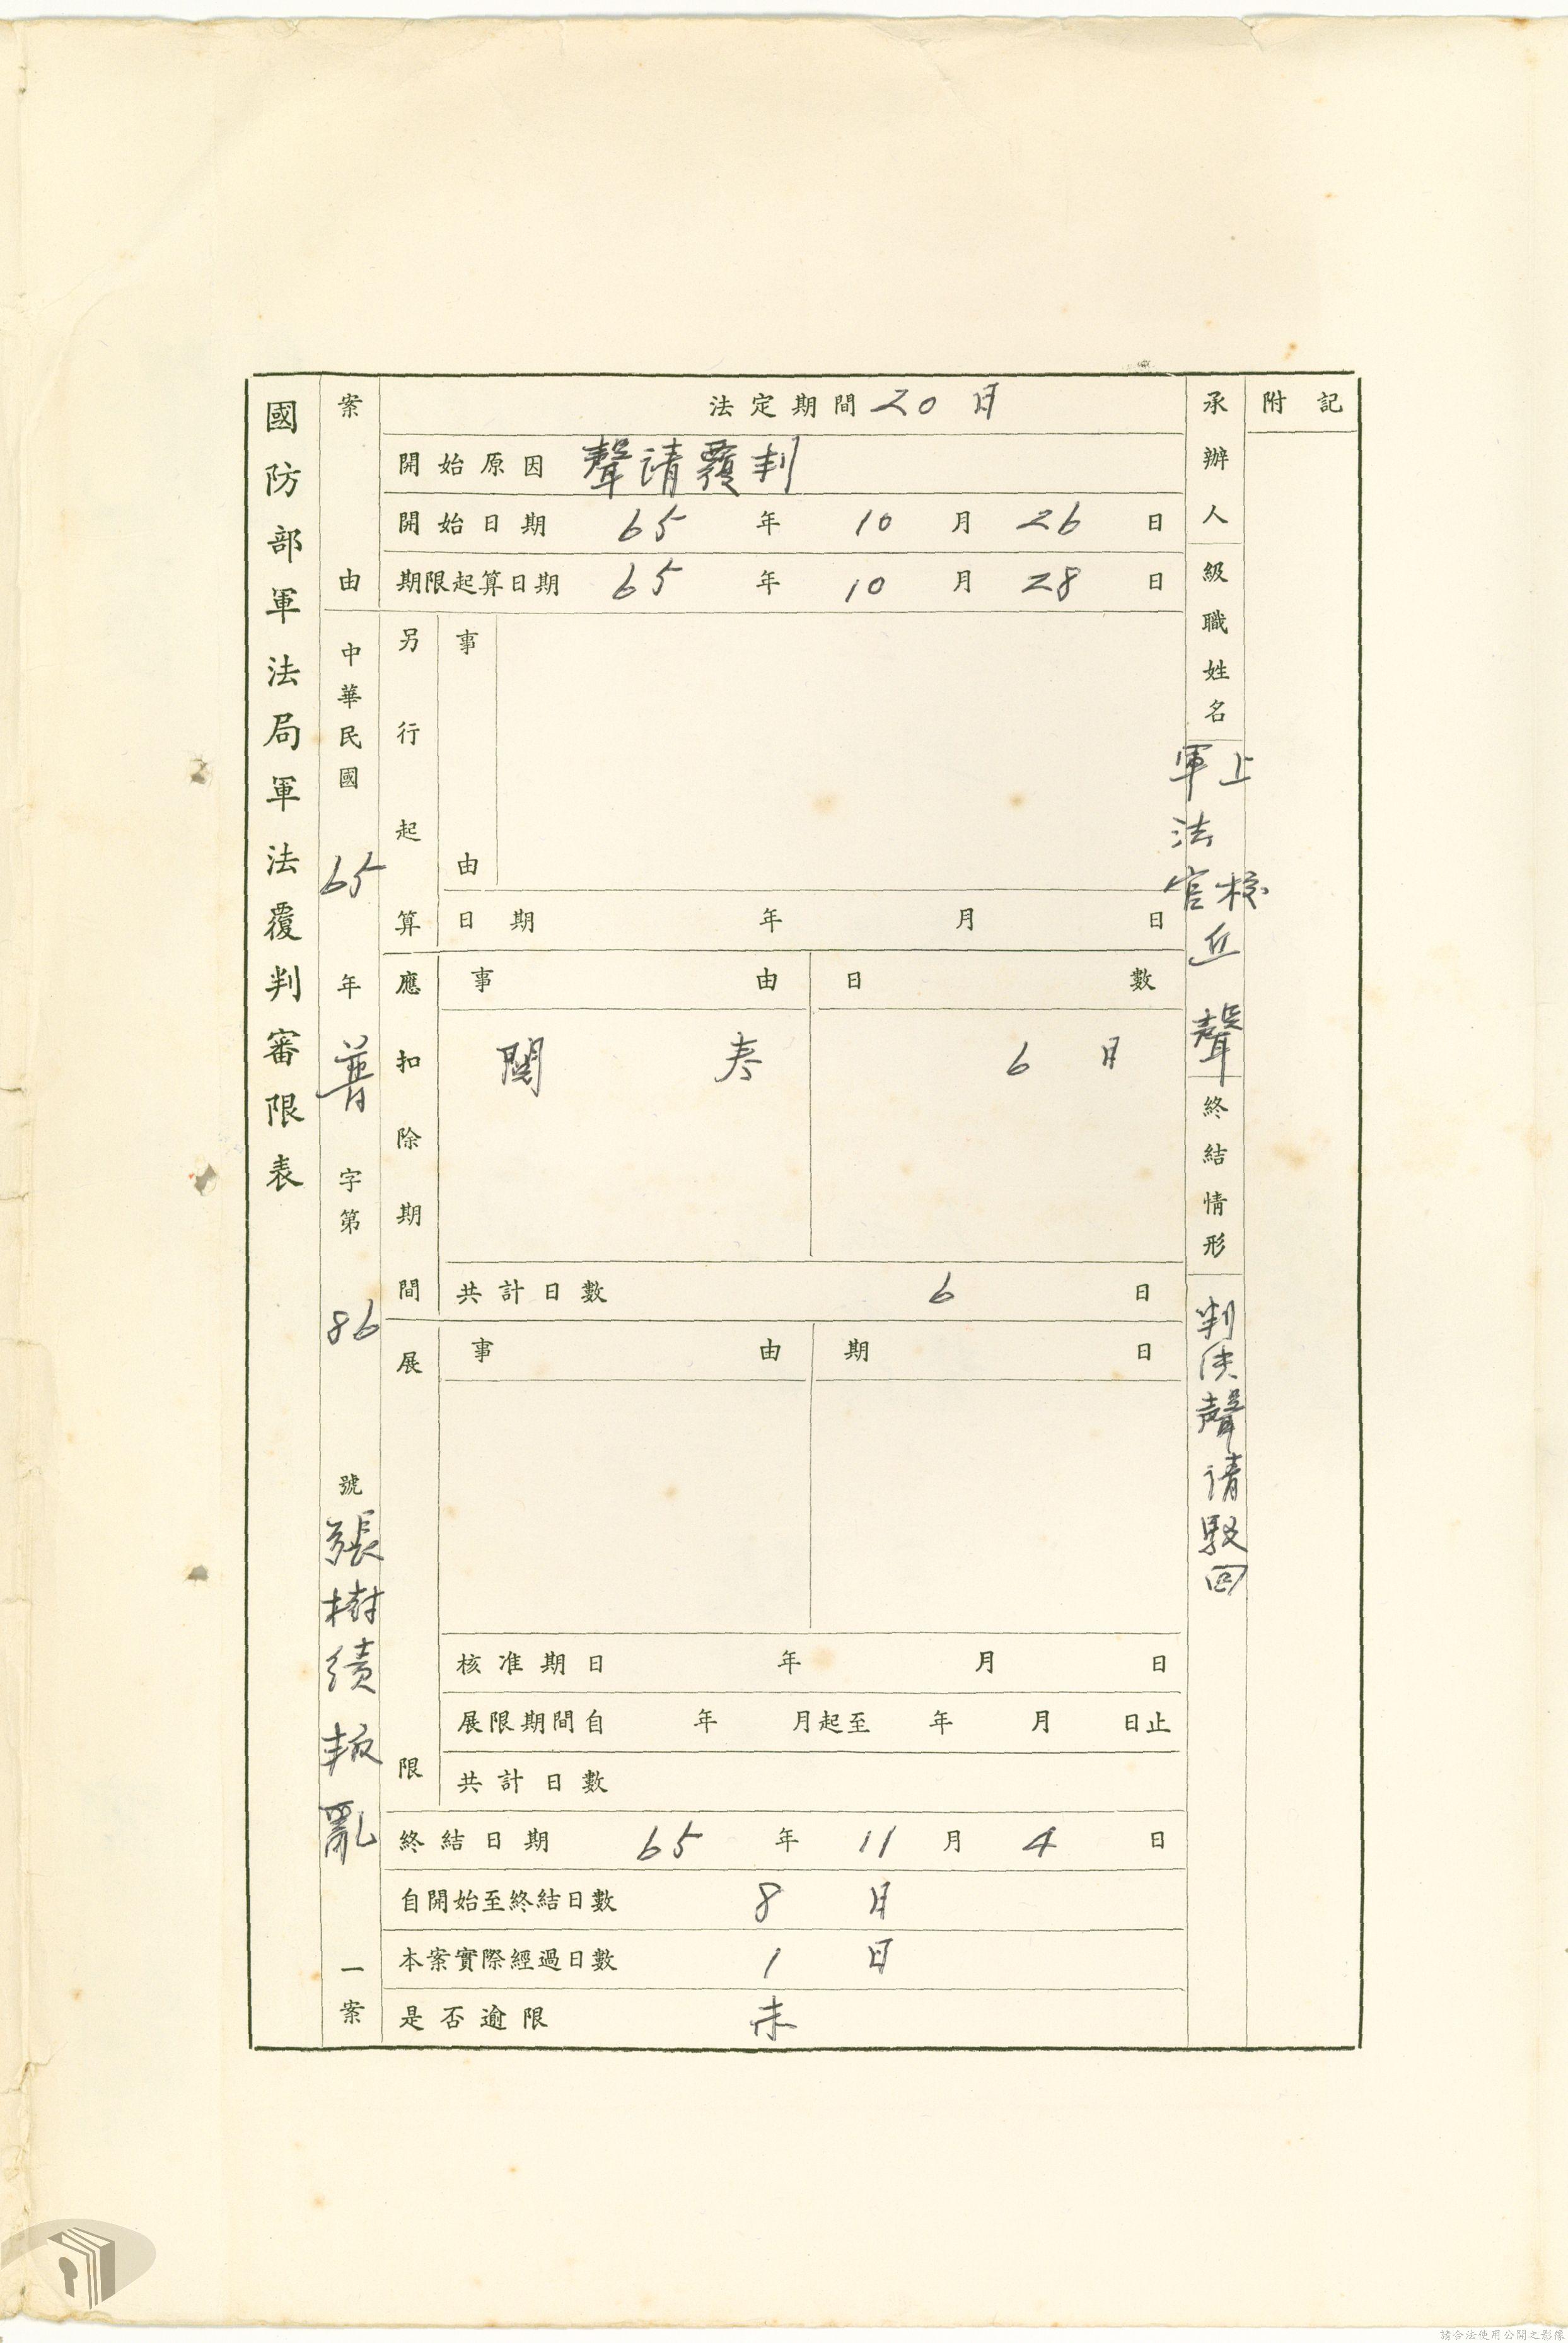 國防部軍法局軍法覆判審限表
案由 中華民國65年普字第86號張樹績叛亂一案
法定期間20日
開始原因 聲請覆判
開始日期 65年10月26日
期限起算日期 65年10月28日
另行起算
事由
日期 年 月 日
應扣除期間
事由 日數
閱卷 6日
共計日數 6日
展限
事由 期日
核准期日 年 月 日
展限期間自 年 月起至 年 月 日止
共計日數
終結日期 65年11月4日
自開始至終結日數 8日
本案實際經過日數 1日
是否逾限 未
承辦人級職姓名
上校
軍法官丘聲
終結情形 判決聲請駁回
附記
請合法使用公開之影像